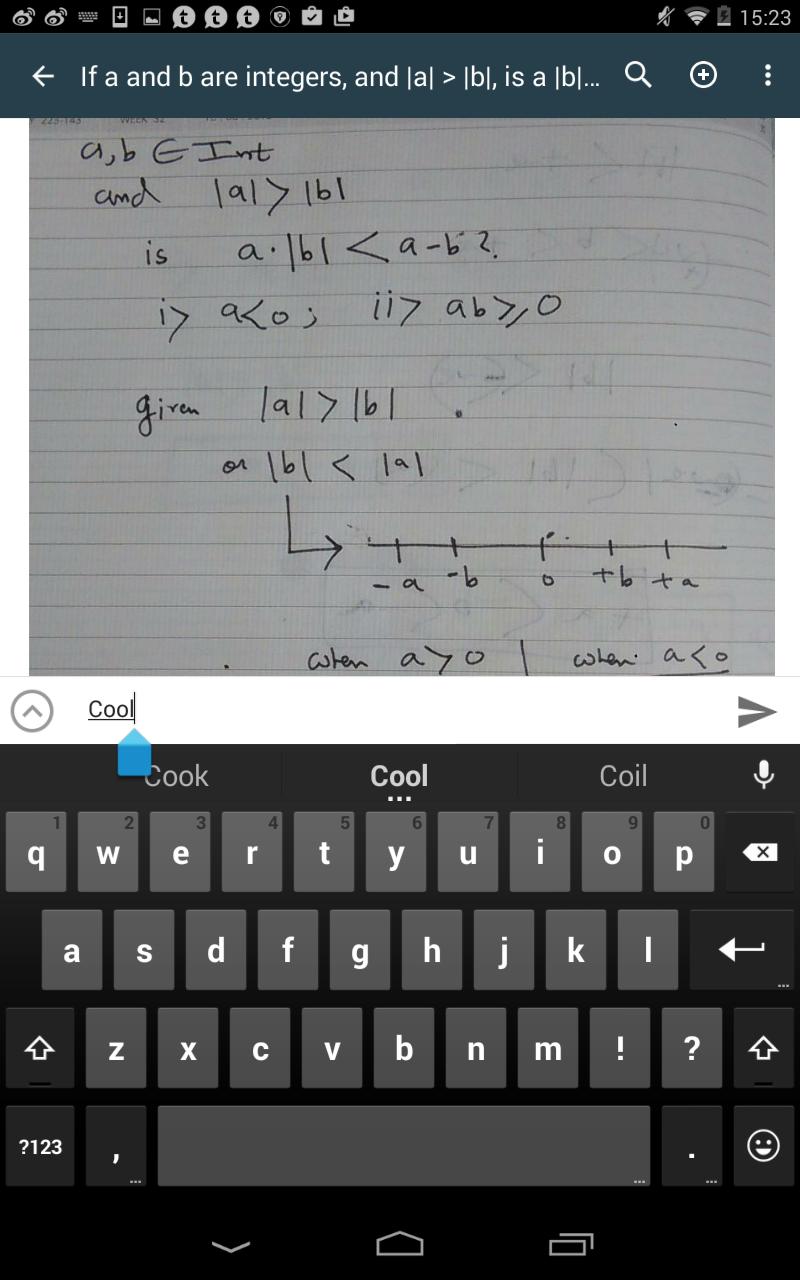 15:23
If a and b are integers, and |a| > |b|, is a |b|...
a, b ∈ Int
and |a| > |b|
is a·|b| < a-b ?
i> a<0 ; ii> ab ≥ 0
given |a| > |b| .
or |b| < |a|
-a -b 0 +b +a
when a > 0 | when a < 0
Cool
Cook Cool Coil
1 2 3 4 5 6 7 8 9 0
q w e r t y u i o p
a s d f g h j k l
z x c v b n m ! ?
?123 , .